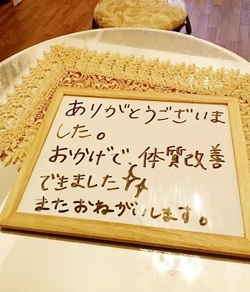 ありがとうございま
した。
おかげで、体質改善
で生ました
またおねがいします。